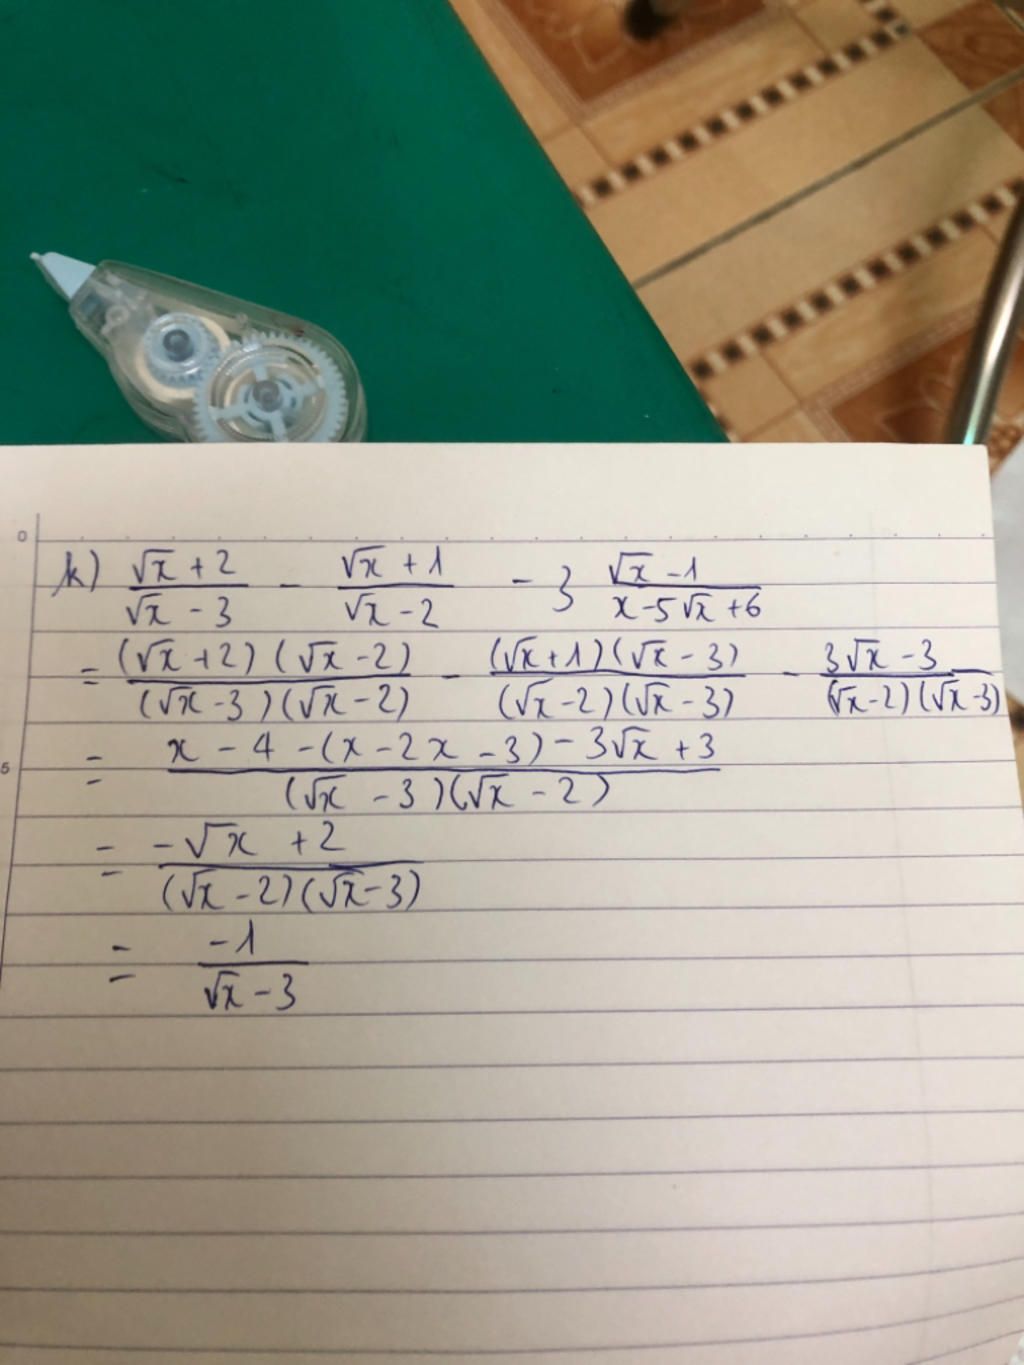 0
k) \frac{\sqrt{x}+2}{\sqrt{x}-3} - \frac{\sqrt{x}+1}{\sqrt{x}-2} - 3 \frac{\sqrt{x}-1}{x-5\sqrt{x}+6}
= \frac{(\sqrt{x}+2)(\sqrt{x}-2)}{(\sqrt{x}-3)(\sqrt{x}-2)} - \frac{(\sqrt{x}+1)(\sqrt{x}-3)}{(\sqrt{x}-2)(\sqrt{x}-3)} - \frac{3\sqrt{x}-3}{(\sqrt{x}-2)(\sqrt{x}-3)}
5 = \frac{x-4-(x-2x-3)-3\sqrt{x}+3}{(\sqrt{x}-3)(\sqrt{x}-2)}
= \frac{-\sqrt{x}+2}{(\sqrt{x}-2)(\sqrt{x}-3)}
= \frac{-1}{\sqrt{x}-3}